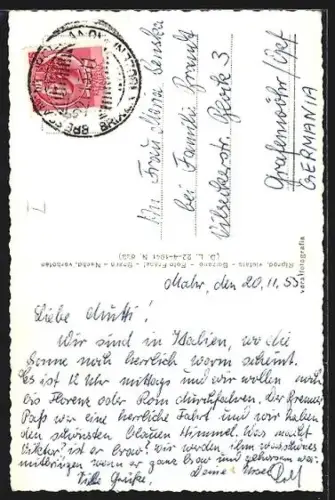 An Frau Mara Lenska
bei Familie Brandt
Vilsecker str. Block 3
Grafenwöhr/Opf
GERMANIA
Riprod. vietata - Bolzano - Foto - Nachd. verboten
(D. L. 22-4-1941 N. 633)
vera fotografia
BRESSANONE
BRIXEN
Mahr, den 20.11.55
Liebe Mutti!
Wir sind in Italien, wo die
Sonne noch herrlich warm scheint.
Es ist 12 Uhr mittags und wir wollen noch
bis Florenz oder Rom durchfahren. Der Brenner
Paß war eine herrliche Fahrt und wir haben
den schönsten blauen Himmel. Was macht
Viktor, ist er brav? wir werden ihm was schönes
mitbringen wenn er ganz brav und gehorsam war.
Viele Grüße, Deine